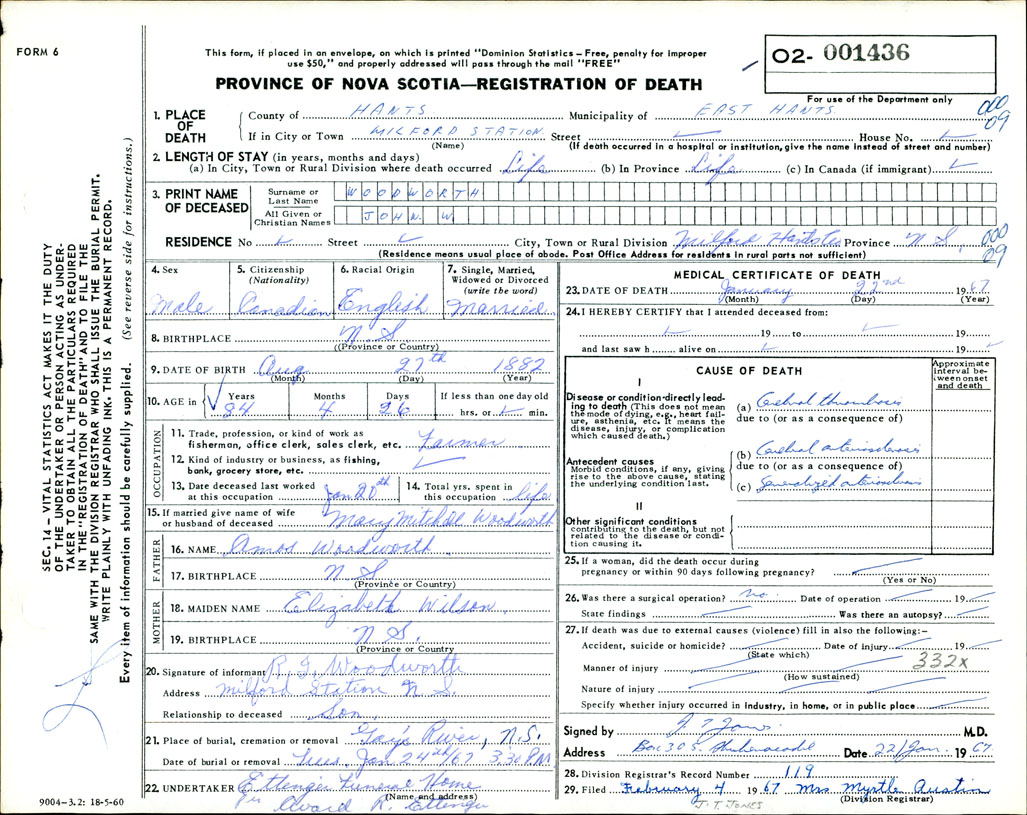 FORM 6
This form, if placed in an envelope, on which is printed "Dominion Statistics – Free, penalty for improper
use $50," and properly addressed will pass through the mail "FREE"
02- 001436
PROVINCE OF NOVA SCOTIA—REGISTRATION OF DEATH
For use of the Department only
1. PLACE OF DEATH
County of HANTS Municipality of EAST HANTS
000
09
If in City or Town MILFORD STATION Street House No.
(Name) (If death occurred in a hospital or institution, give the name instead of street and number)
2. LENGTH OF STAY (in years, months and days)
(a) In City, Town or Rural Division where death occurred Life (b) In Province Life (c) In Canada (if immigrant)
3. PRINT NAME OF DECEASED
Surname or Last Name WOODWORTH
All Given or Christian Names JOHN. W
RESIDENCE No Street City, Town or Rural Division Milford Hants Province N.S.
000
09
(Residence means usual place of abode. Post Office Address for residents in rural parts not sufficient)
4. Sex
Male
5. Citizenship
(Nationality)
Canadian
6. Racial Origin
English
7. Single, Married,
Widowed or Divorced
(write the word)
Married
8. BIRTHPLACE N.S
(Province or Country)
9. DATE OF BIRTH Aug 27th 1882
(Month) (Day) (Year)
10. AGE in Years Months Days If less than one day old
84 4 26 hrs. or min.
OCCUPATION
11. Trade, profession, or kind of work as
fisherman, office clerk, sales clerk, etc. Farmer
12. Kind of industry or business, as fishing,
bank, grocery store, etc.
13. Date deceased last worked
at this occupation Jan 20th
14. Total yrs. spent in
this occupation life
15. If married give name of wife
or husband of deceased Mary Mitchell Woodworth
FATHER
16. NAME Amos Woodworth
17. BIRTHPLACE N S
(Province or Country)
MOTHER
18. MAIDEN NAME Elizabeth Wilson
19. BIRTHPLACE N S.
(Province or Country
20. Signature of informant R. J. Woodworth
Address Milford Station N S.
Relationship to deceased Son
21. Place of burial, cremation or removal Gay's River, N.S.
Date of burial or removal Tues. Jan 24th/67 3.30 PM
22. UNDERTAKER Ettenger Funeral Home
(Name and address)
Per R. Ettenger
9004-3.2: 18-5-60
MEDICAL CERTIFICATE OF DEATH
23. DATE OF DEATH January 22nd 1967
(Month) (Day) (Year)
24. I HEREBY CERTIFY that I attended deceased from:
19 to 19
and last saw h alive on 19
CAUSE OF DEATH
Approximate interval between onset and death
I
Disease or condition-directly leading to death (This does not mean
the mode of dying, e.g., heart failure, asthenia, etc. It means the
disease, injury, or complication
which caused death.)
(a) Cerebral thrombosis
due to (or as a consequence of)
Antecedent causes
Morbid conditions, if any, giving
rise to the above cause, stating
the underlying condition last.
(b) Cerebral arteriosclerosis
due to (or as a consequence of)
(c) Generalized arteriosclerosis
II
Other significant conditions
contributing to the death, but not
related to the disease or condition causing it.
25. If a woman, did the death occur during
pregnancy or within 90 days following pregnancy?
(Yes or No)
26. Was there a surgical operation? no. Date of operation 19
State findings Was there an autopsy?
27. If death was due to external causes (violence) fill in also the following:–
Accident, suicide or homicide? Date of injury 19
(State which)
332x
Manner of injury
(How sustained)
Nature of injury
Specify whether injury occurred in industry, in home, or in public place
Signed by J T Jones M.D.
Address Box 305 Shubenacadie Date 22/Jan. 1967
28. Division Registrar's Record Number 119
29. Filed February 4 1967 Mrs Myrtle Austin
J. T. JONES
(Division Registrar)
SEC. 14 – VITAL STATISTICS ACT MAKES IT THE DUTY
OF THE UNDERTAKER OR PERSON ACTING AS UNDERTAKER TO OBTAIN ALL THE PARTICULARS REQUIRED
IN THE "REGISTRATION OF DEATH" AND TO FILE THE
SAME WITH THE DIVISION REGISTRAR WHO SHALL ISSUE THE BURIAL PERMIT.
WRITE PLAINLY WITH UNFADING INK. THIS IS A PERMANENT RECORD.
Every item of information should be carefully supplied. (See reverse side for instructions.)